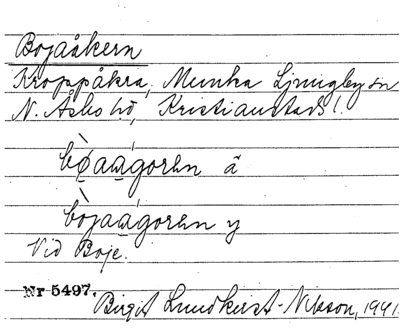 Bojaåkern
Kroppåkra, Munka Ljungby sn
N. Åsbo hd, Kristianstads l.
bøaágorən ä
bòjaágorən y
Vid Boje.
Nr 5497.
Birgit Lundkvist-Nilsson, 1941.